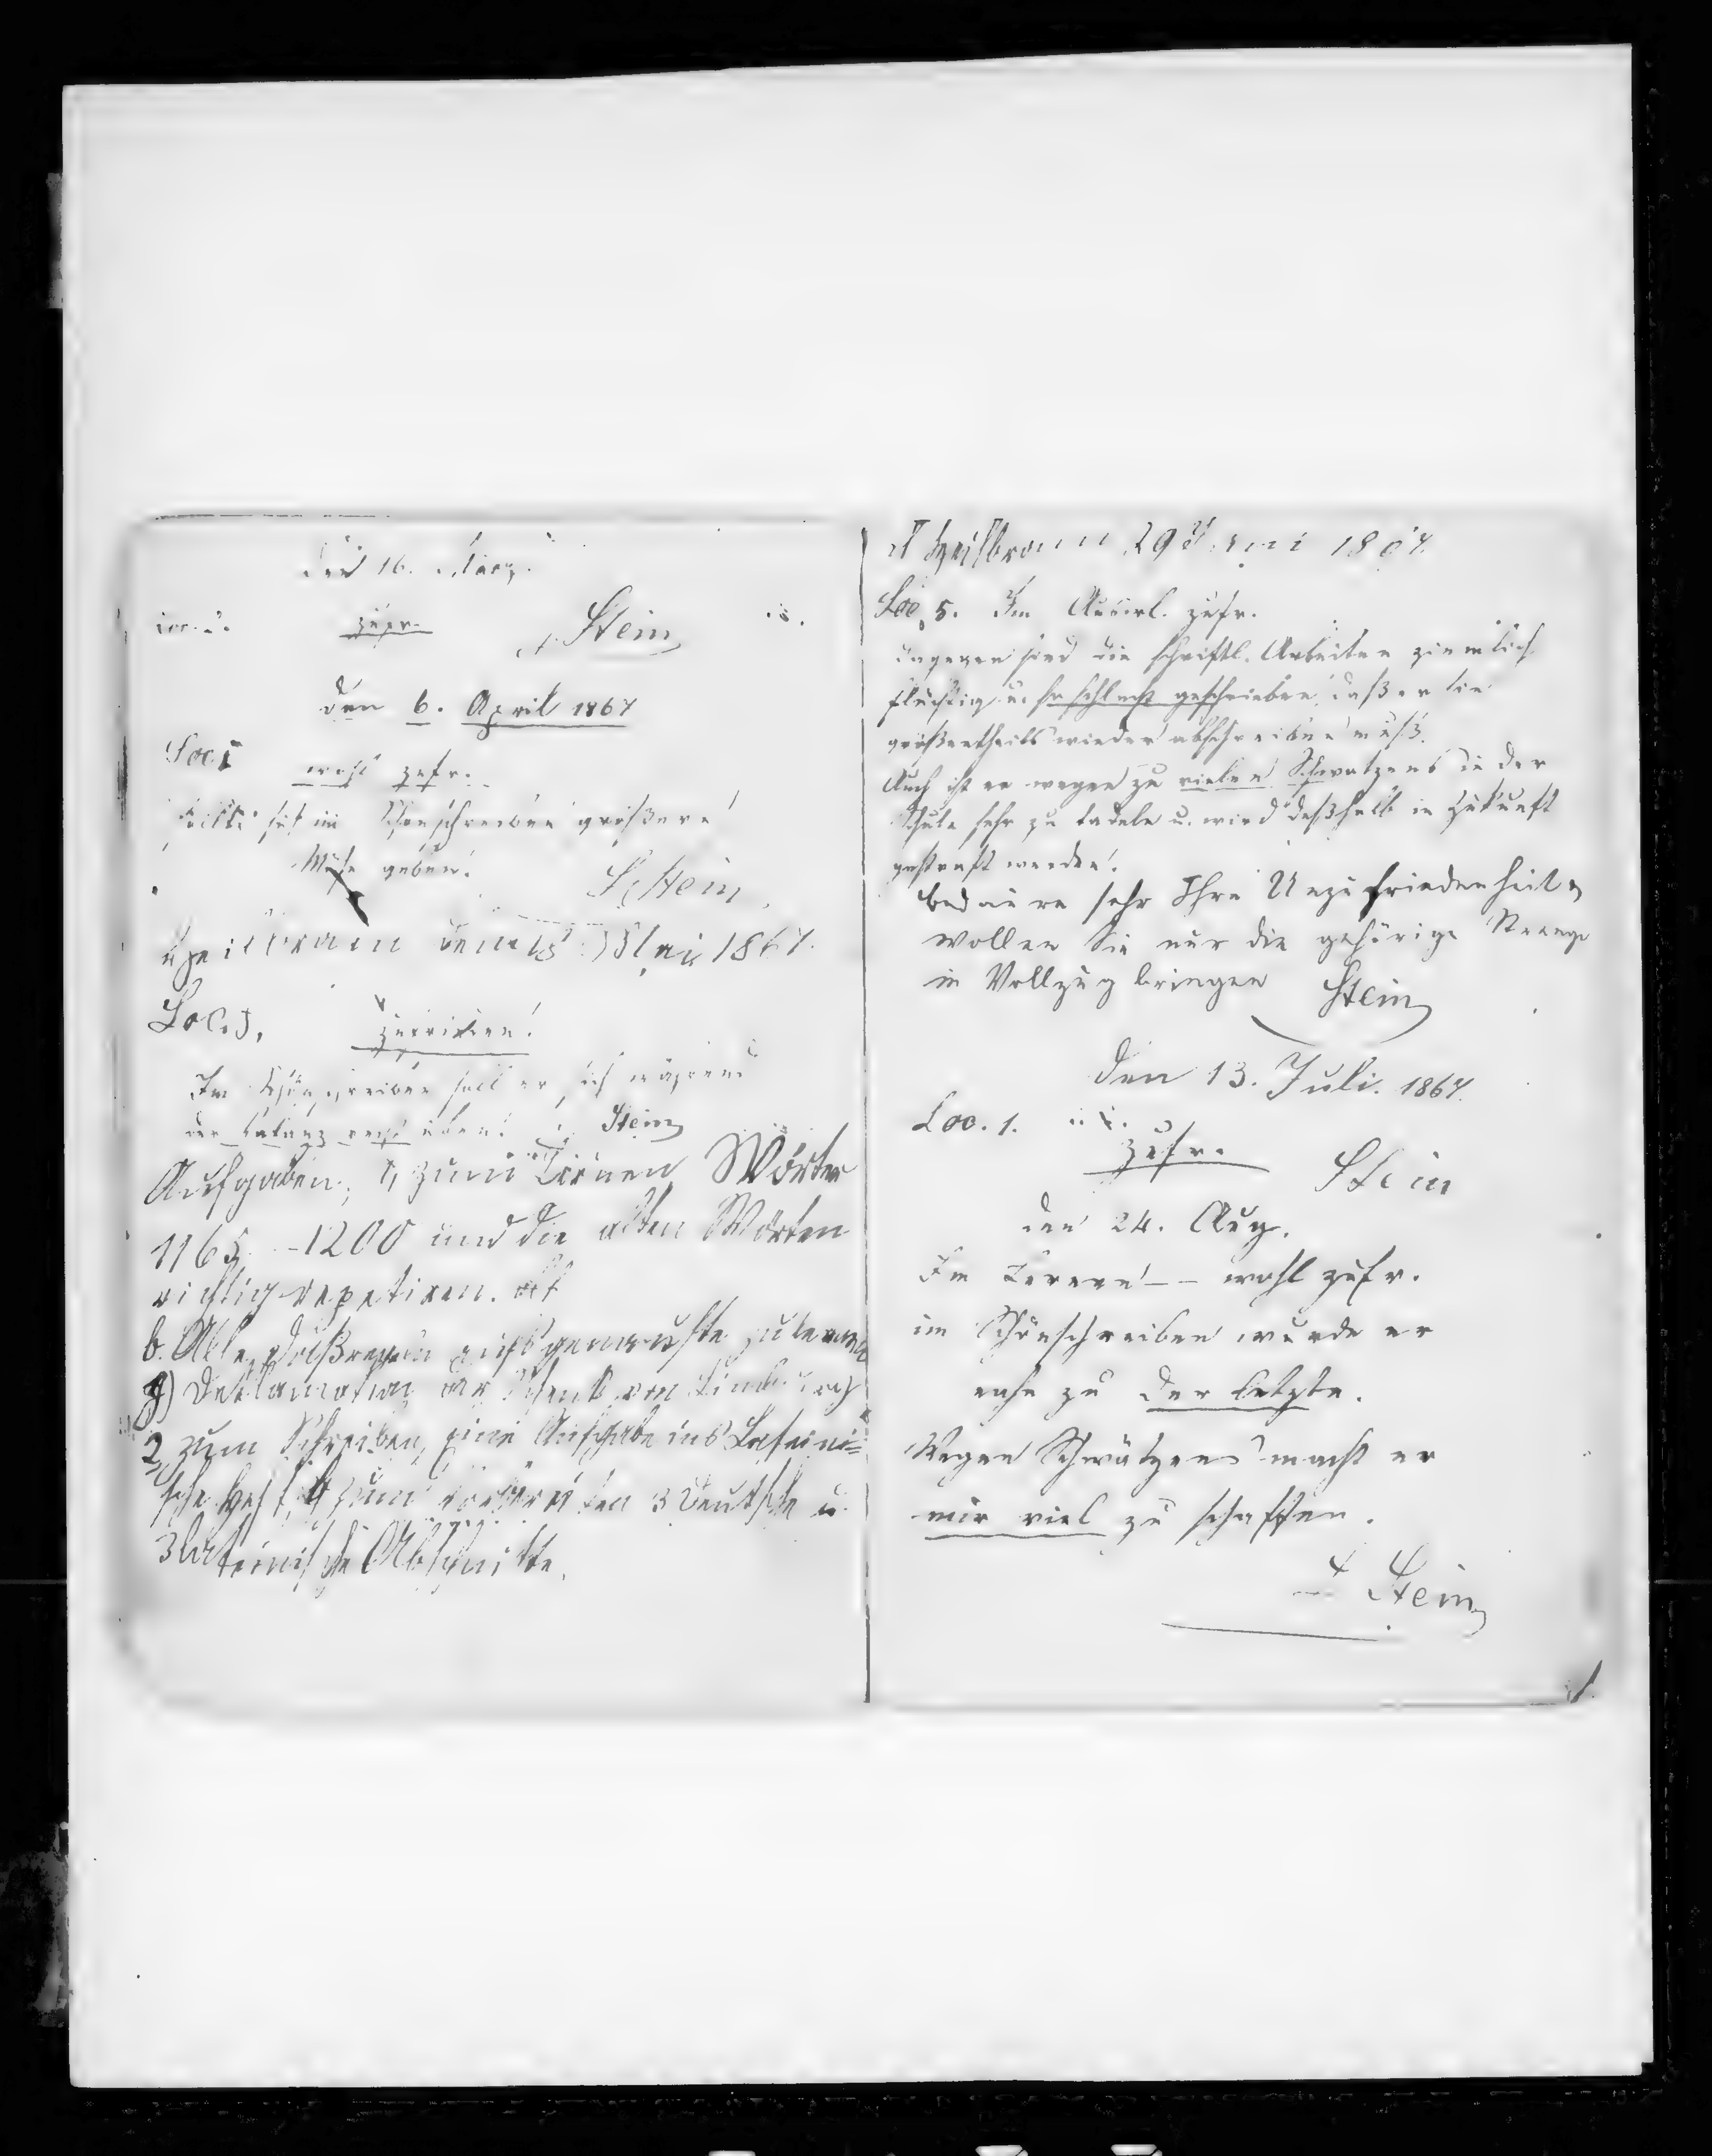 Den 16. März.
Loc. zufr. Stein
Den 6. April 1867
Loc. 1 wohl zufr.
sollte sich im Schönschreiben größere
Mühe geben. Stein
Heilbronn den 18 Mai 1867.
Loc. 3. zufrieden!
Im Schönschreiben soll er sich während
der Vakanz recht üben! Stein
Aufgaben; 1, zum Lernen Wörter
1165 - 1200 und die alten Wörter
richtig repetiren.
b. Alle
) Deklamation der Schenk von Limburg
2, zum Schreiben, eine Aufgabe ins Lateini=
sche Heft, 3 Deutsche u.
3 lateinische Abschnitte.
Heilbronn 29 Juni 1867.
Loc. 5. Im Auswl. zufr.
dagegen sind die schriftl. Arbeiten ziemlich
flüchtig u. so schlecht geschrieben, daß er sie
größtentheils wieder abschreiben muß.
Auch ist er wegen zu vielen Schwatzens in der
Schule sehr zu tadeln u. wird deßhalb in Zukunft
gestraft werden.
Bedaure sehr Ihre Unzufriedenheit,
wollen Sie nur die gehörige Strenge
in Vollzug bringen Stein
Den 13. Juli. 1867.
Loc. 1.
zufr. Stein
den 24. Aug.
Im Lernen -- wohl zufr.
im Schönschreiben wurde er
nahe zu der letzte.
Wegen Schwätzens macht er
mir viel zu schaffen.
Stein